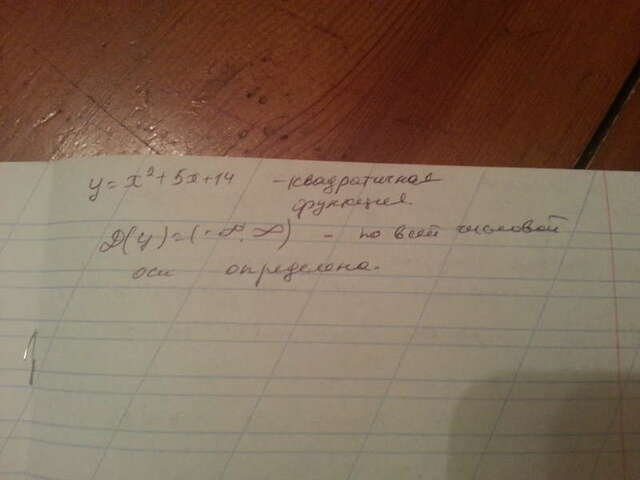 y = x² + 5x + 14 - квадратичная
функция.
D(y) = (-∞; ∞) - по всей числовой
оси определена.